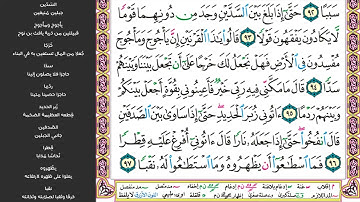 سَبَبًا ٩٢ حَتَّىٰٓ إِذَا بَلَغَ بَيْنَ ٱلسَّدَّيْنِ وَجَدَ مِن دُونِهِمَا قَوْمًا
لَّا يَكَادُونَ يَفْقَهُونَ قَوْلًا ٩٣ قَالُوا۟ يَٰذَا ٱلْقَرْنَيْنِ إِنَّ يَأْجُوجَ وَمَأْجُوجَ
مُفْسِدُونَ فِى ٱلْأَرْضِ فَهَلْ نَجْعَلُ لَكَ خَرْجًا عَلَىٰٓ أَن تَجْعَلَ بَيْنَنَا وَبَيْنَهُمْ
سَدًّا ٩٤ قَالَ مَا مَكَّنِّى فِيهِ رَبِّى خَيْرٌ فَأَعِينُونِى بِقُوَّةٍ أَجْعَلْ بَيْنَكُمْ
وَبَيْنَهُمْ رَدْمًا ٩٥ ءَاتُونِى زُبَرَ ٱلْحَدِيدِ حَتَّىٰٓ إِذَا سَاوَىٰ بَيْنَ ٱلصَّدَفَيْنِ
قَالَ ٱنفُخُوا۟ حَتَّىٰٓ إِذَا جَعَلَهُۥ نَارًا قَالَ ءَاتُونِىٓ أُفْرِغْ عَلَيْهِ قِطْرًا ٩٦
فَمَا ٱسْطَٰعُوٓا۟ أَن يَظْهَرُوهُ وَمَا ٱسْتَطَٰعُوا۟ لَهُۥ نَقْبًا ٩٧
السدين
جبلين منيفين
يأجوج ومأجوج
قبيلتين من ذرية يافث بن نوح
خرجًا
سدًا
حاجزا فلا يصلون إلينا
ردمًا
حاجزا حصينا متينا
زبر الحديد
قطعه العظيمة الضخمة
الصدفين
جانبي الجبلين
قطرا
نحاسًا مذابا
يظهروه
يعلوا على ظهره لارتفاعه
نقبا
خرقا وثقبا لصلابته وثخانته